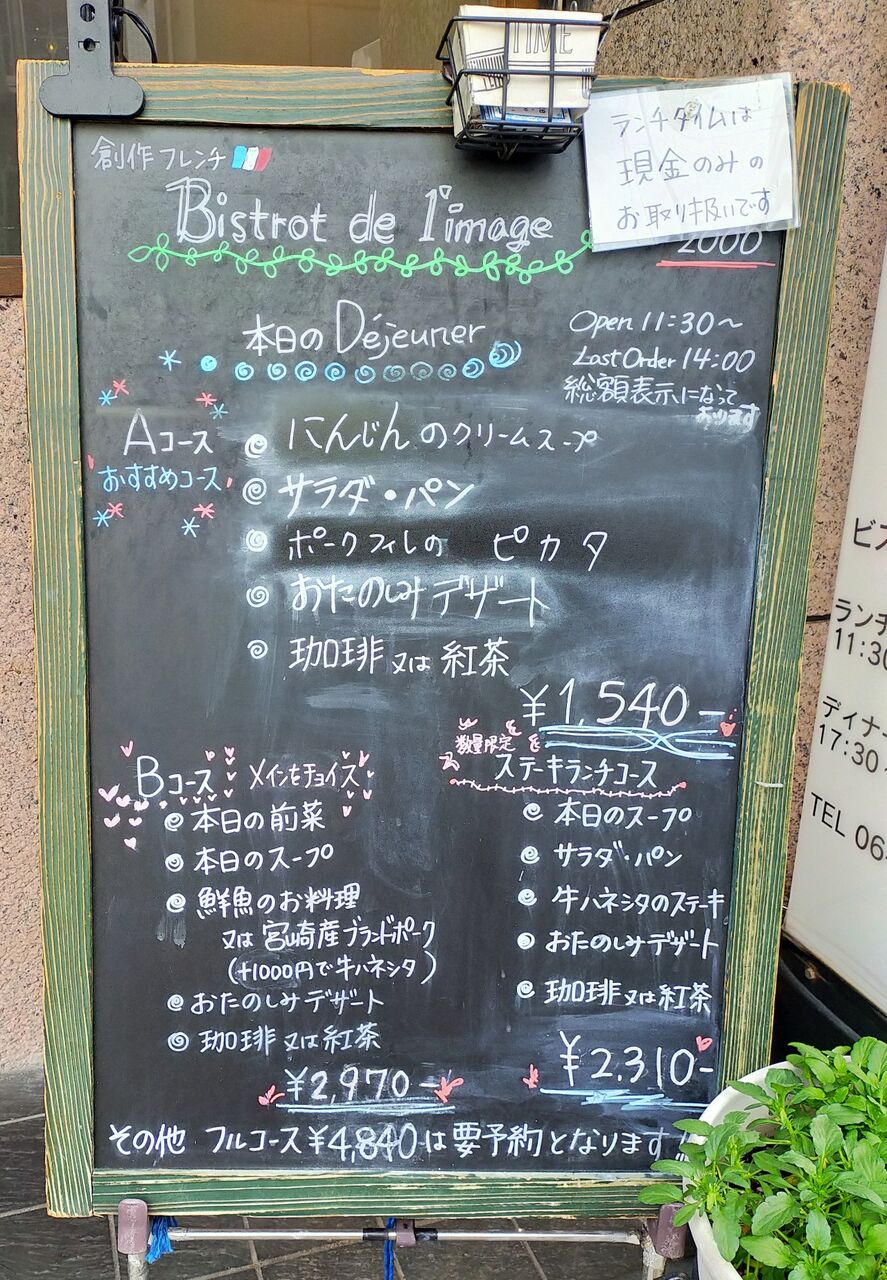 TIME
ランチタイムは
現金のみの
お取り扱いです
創作フレンチ
Bistrot de l'image
2000
本日の Déjeuner
Open 11:30～
Last Order 14:00
総額表示になって
おります
Aコース
おすすめコース
にんじんのクリームスープ
サラダ・パン
ポークフィレの ピカタ
おたのしみデザート
珈琲 又は 紅茶
¥1,540-
Bコース メインをチョイス
本日の前菜
本日のスープ
鮮魚のお料理
又は 宮崎産ブランドポーク
(+1000円で牛ハネシタ)
おたのしみデザート
珈琲 又は 紅茶
¥2,970-
数量限定
ステーキランチコース
本日のスープ
サラダ・パン
牛ハネシタのステーキ
おたのしみデザート
珈琲 又は 紅茶
¥2,310-
その他 フルコース¥4,840は要予約となります!!
ビス
ランチ
11:30
ディナー
17:30
TEL 06